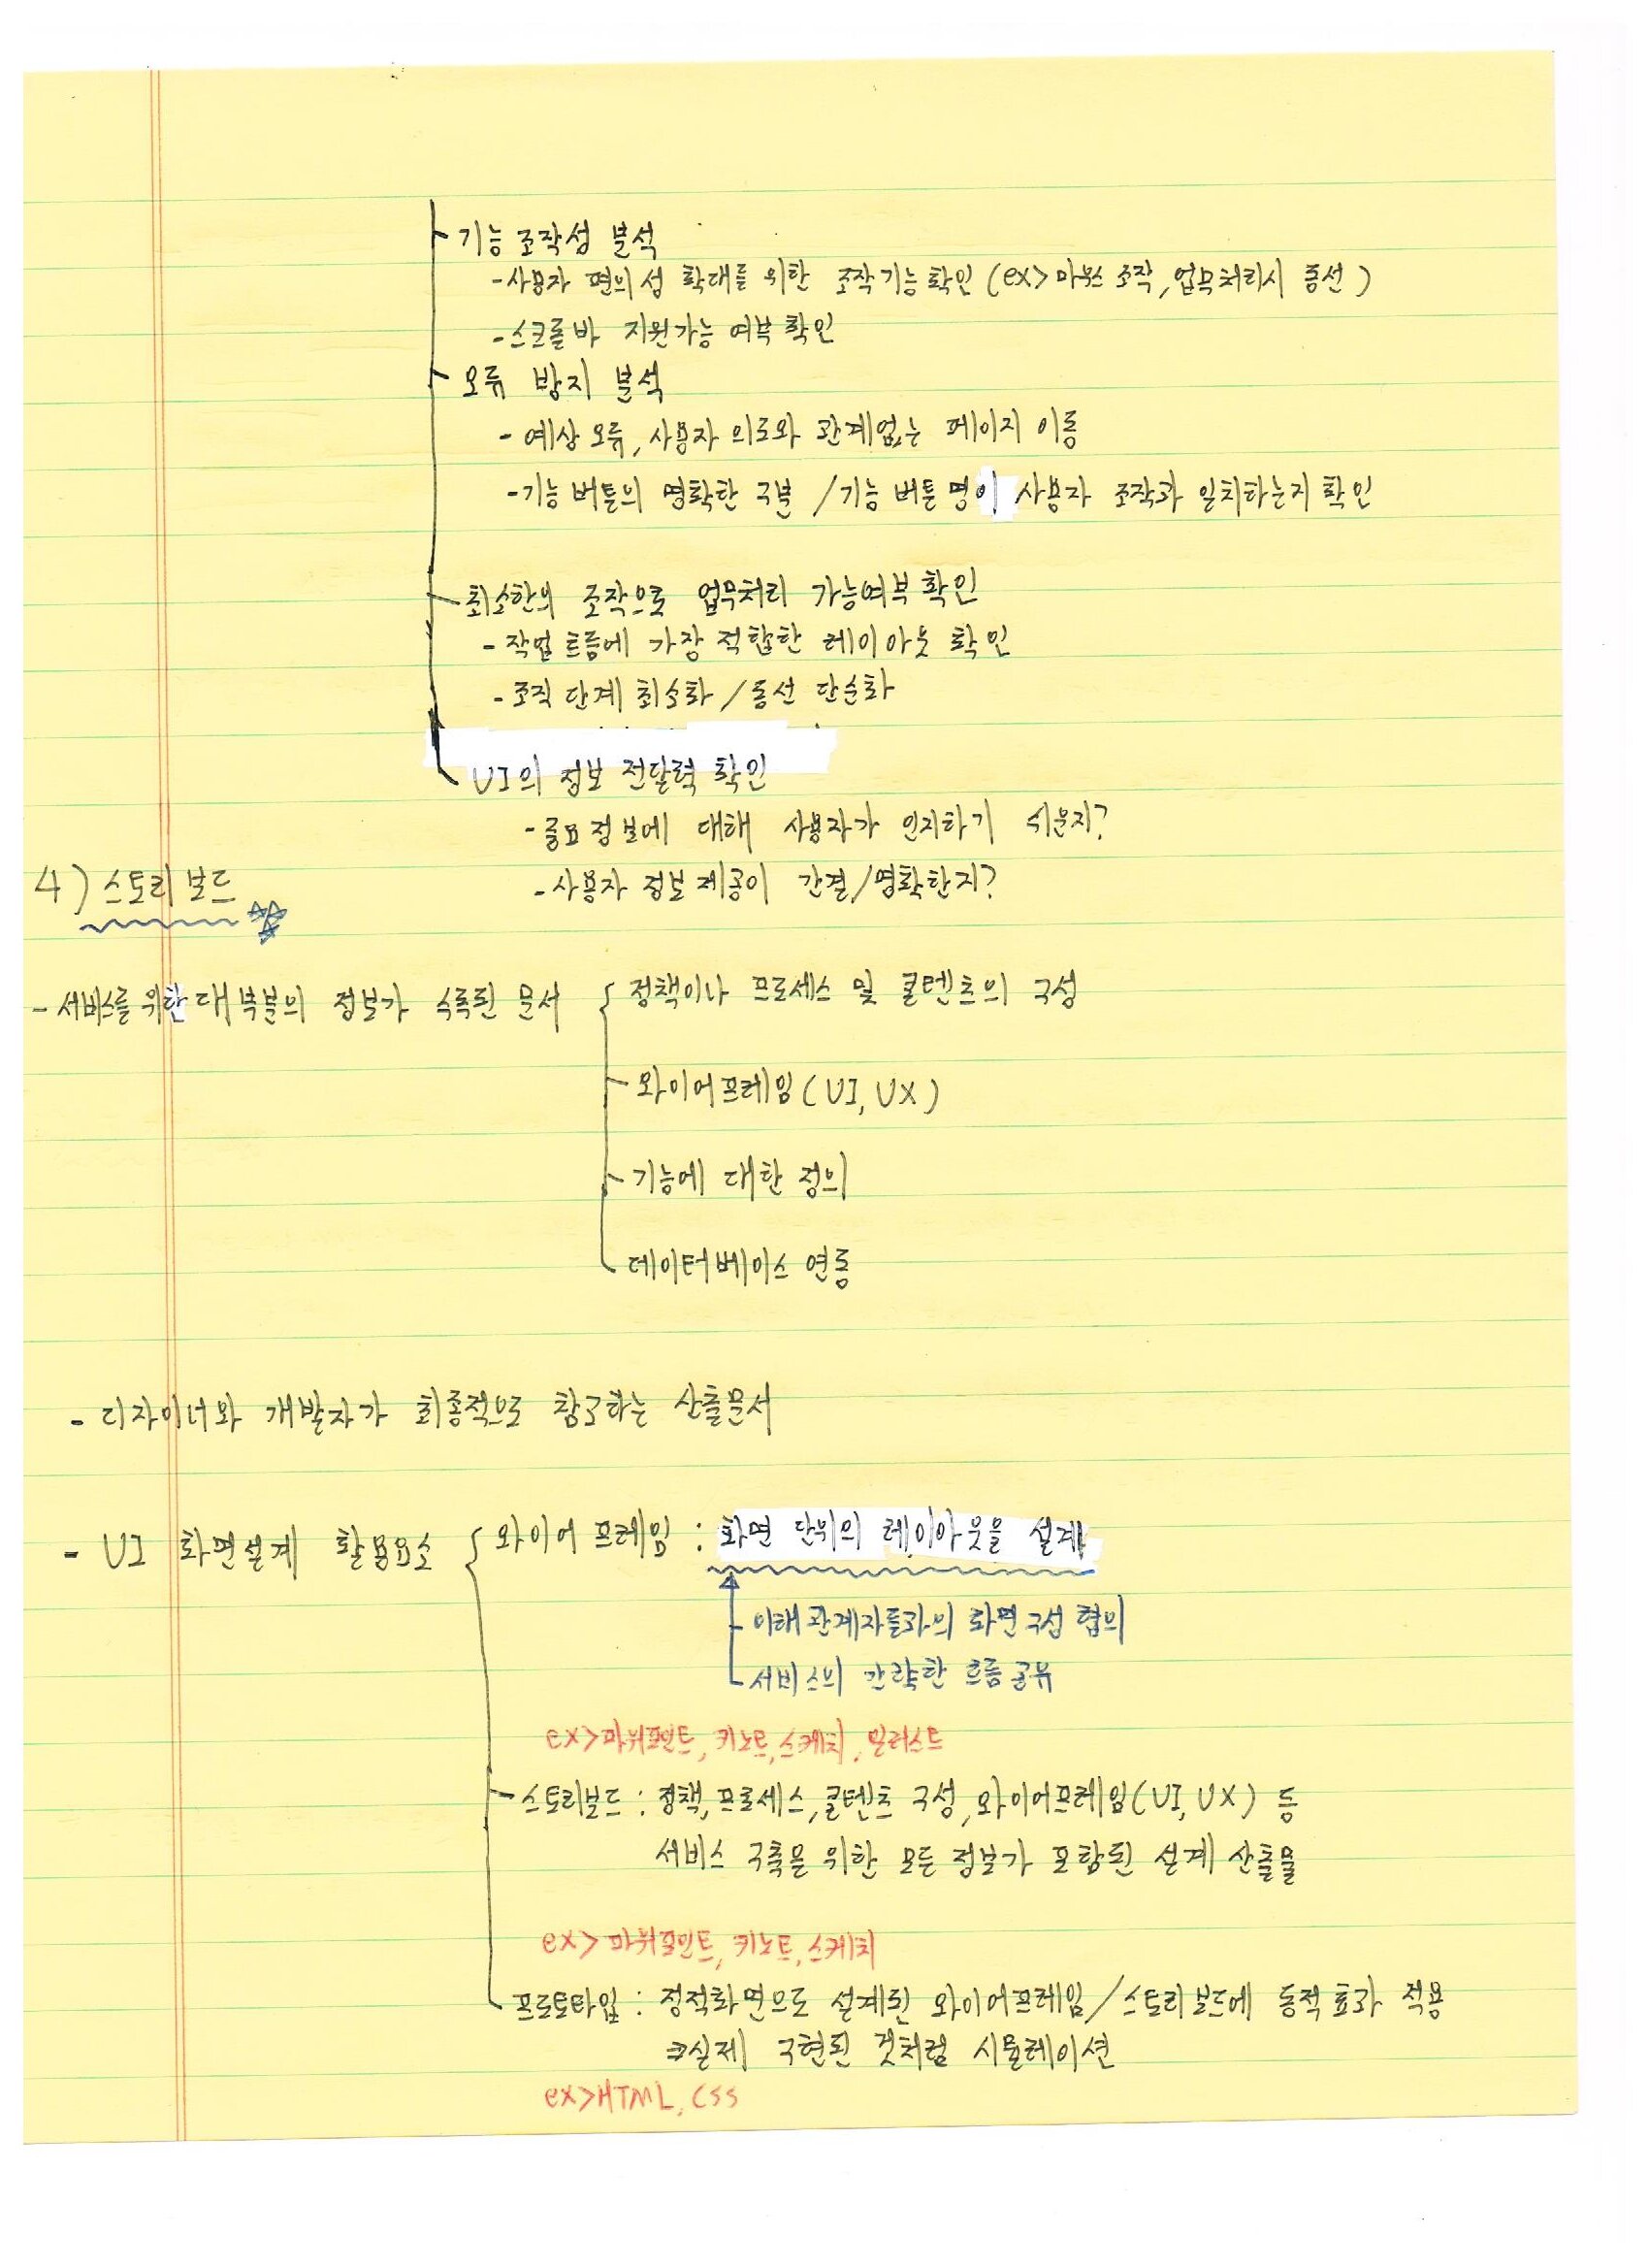 기능 조작성 분석
-사용자 편의성 확대를 위한 조작기능 확인 (ex> 마우스 조작, 업무처리시 동선)
-스크롤바 지원가능 여부 확인
오류 방지 분석
- 예상 오류, 사용자 의도와 관계없는 페이지 이동
-기능 버튼의 명확한 구분 / 기능 버튼 명이 사용자 조작과 일치하는지 확인
최소한의 조작으로 업무처리 가능여부 확인
- 작업 흐름에 가장 적합한 레이아웃 확인
- 조직 단계 최소화 / 동선 단순화
UI의 정보 전달력 확인
-중요 정보에 대해 사용자가 인지하기 쉬운지?
-사용자 정보 제공이 간결/명확한지?
4) 스토리보드
- 서비스를 위한 대부분의 정보가 수록된 문서
정책이나 프로세스 및 콘텐츠의 구성
와이어프레임(UI, UX)
기능에 대한 정의
데이터베이스 연동
- 디자이너와 개발자가 최종적으로 참고하는 산출문서
- UI 화면설계 활용요소
와이어 프레임 : 화면 단위의 레이아웃을 설계
이해관계자들과의 화면구성 협의
서비스의 간략한 흐름 공유
ex>파워포인트, 키노트, 스케치, 일러스트
스토리보드 : 정책, 프로세스, 콘텐츠 구성, 와이어프레임(UI, UX) 등
서비스 구축을 위한 모든 정보가 포함된 설계 산출물
ex> 파워포인트, 키노트, 스케치
프로토타입 : 정적화면으로 설계된 와이어프레임/스토리보드에 동적 효과 적용
⇒실제 구현된 것처럼 시뮬레이션
ex>HTML, CSS